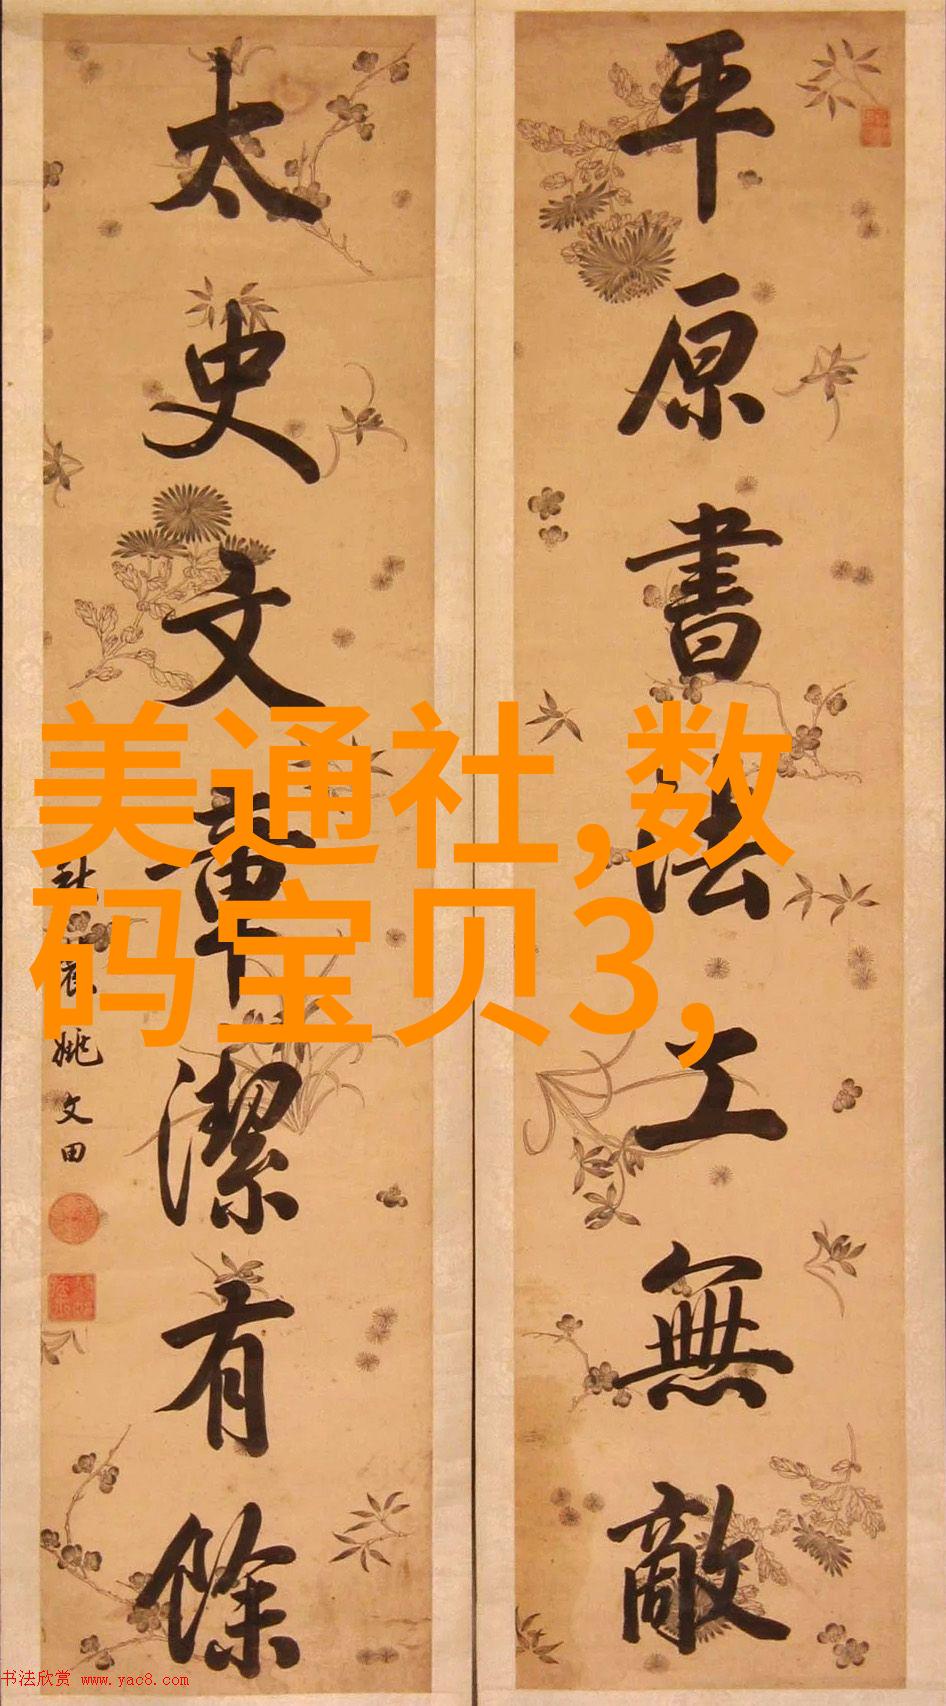 平原書法工無敵
太史文章潔有餘
姚文田
美通社,数
码宝贝3,
书法欣赏 www.yac8.com